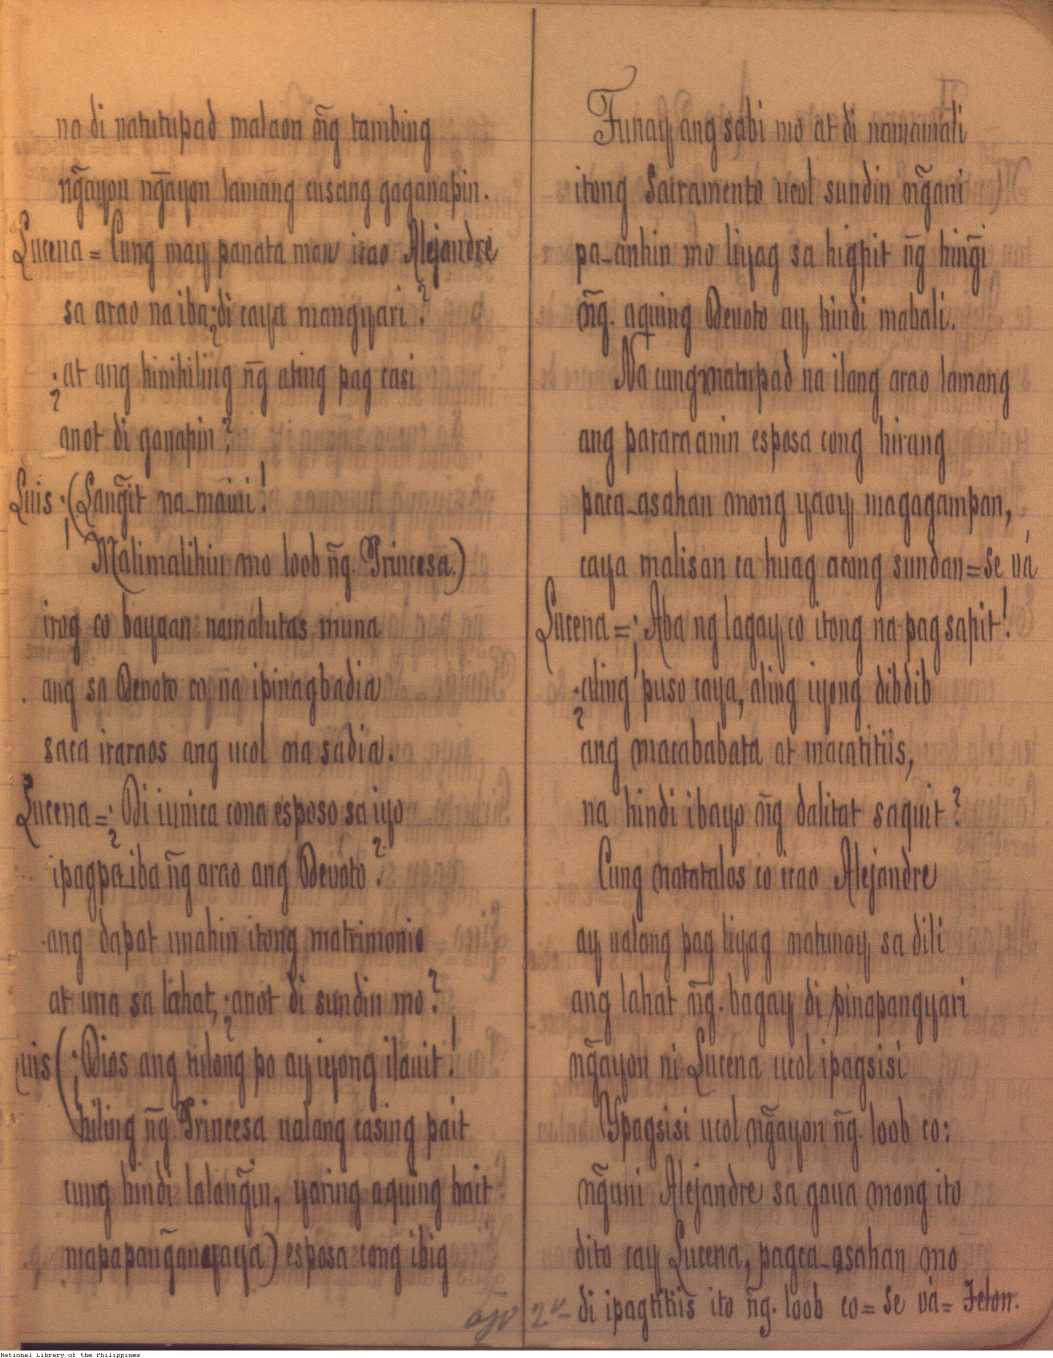 na di natutupad malaon ñg tambing
ñgayon ñgayon lamang cusang gaganapin.
Lucena = Cung may panata man icao Alejandre
sa arao na iba ¿di caya mangyari?
¿at ang hinihiling ñg ating pag casi
anot di ganapin?
Luis ¡(Lañgit na maiui!
Malimalihin mo loob ñg. Princesa.)
irog co bayaan namalutas muna
ang sa Devoto co na ipinagbadia
saca iraraos ang ucol na sadia.
Lucena = ¿Di iuinica cona esposo sa iyo
ipagpa-iba ñg arao ang Devoto?
ang dapat unahin itong matrimonio
at una sa lahat, ¿anot di sundin mo?
Luis (¡Dios ang tulong po ay iyong ilauit!
hiling ñg Princesa ualang casing pait
cung hindi lalañgin, yaring aquing bait
mapapañganyaya) esposa cong ibig
Tunay ang sabi mo at di namamali
itong Sacramento ucol sundin ñgani
pa-anhin mo liyag sa higpit ñg hiñgi
ñg. aquing Devoto ay hindi mabali.
Na cung matupad na ilang arao lamang
ang pararaanin esposa cong hirang
paca-asahan monong yaoy magagampan,
caya malisan ca huag acong sundan = Se vá
Lucena = ¡Aba ng lagay co itong na pag sapit!
¿aling puso caya, aling iyong dibdib
ang macababata at macatitiis,
na hindi ibayo ñg dalitat saquit?
Cung natatalos co icao Alejandre
ay ualang pag liyag matunoy sa dili
ang lahat ñg. bagay di pinapangyari
ñgayon ni Lucena ucol ipagsisi
Ypagsisi ucol ñgayon ñg. loob co:
ñguni Alejandre sa gaua mong ito
dito cay Lucena, pagca-asahan mo
di ipagtitiis ito ñg. loob co = Se vá = Telon.
National Library of the Philippines